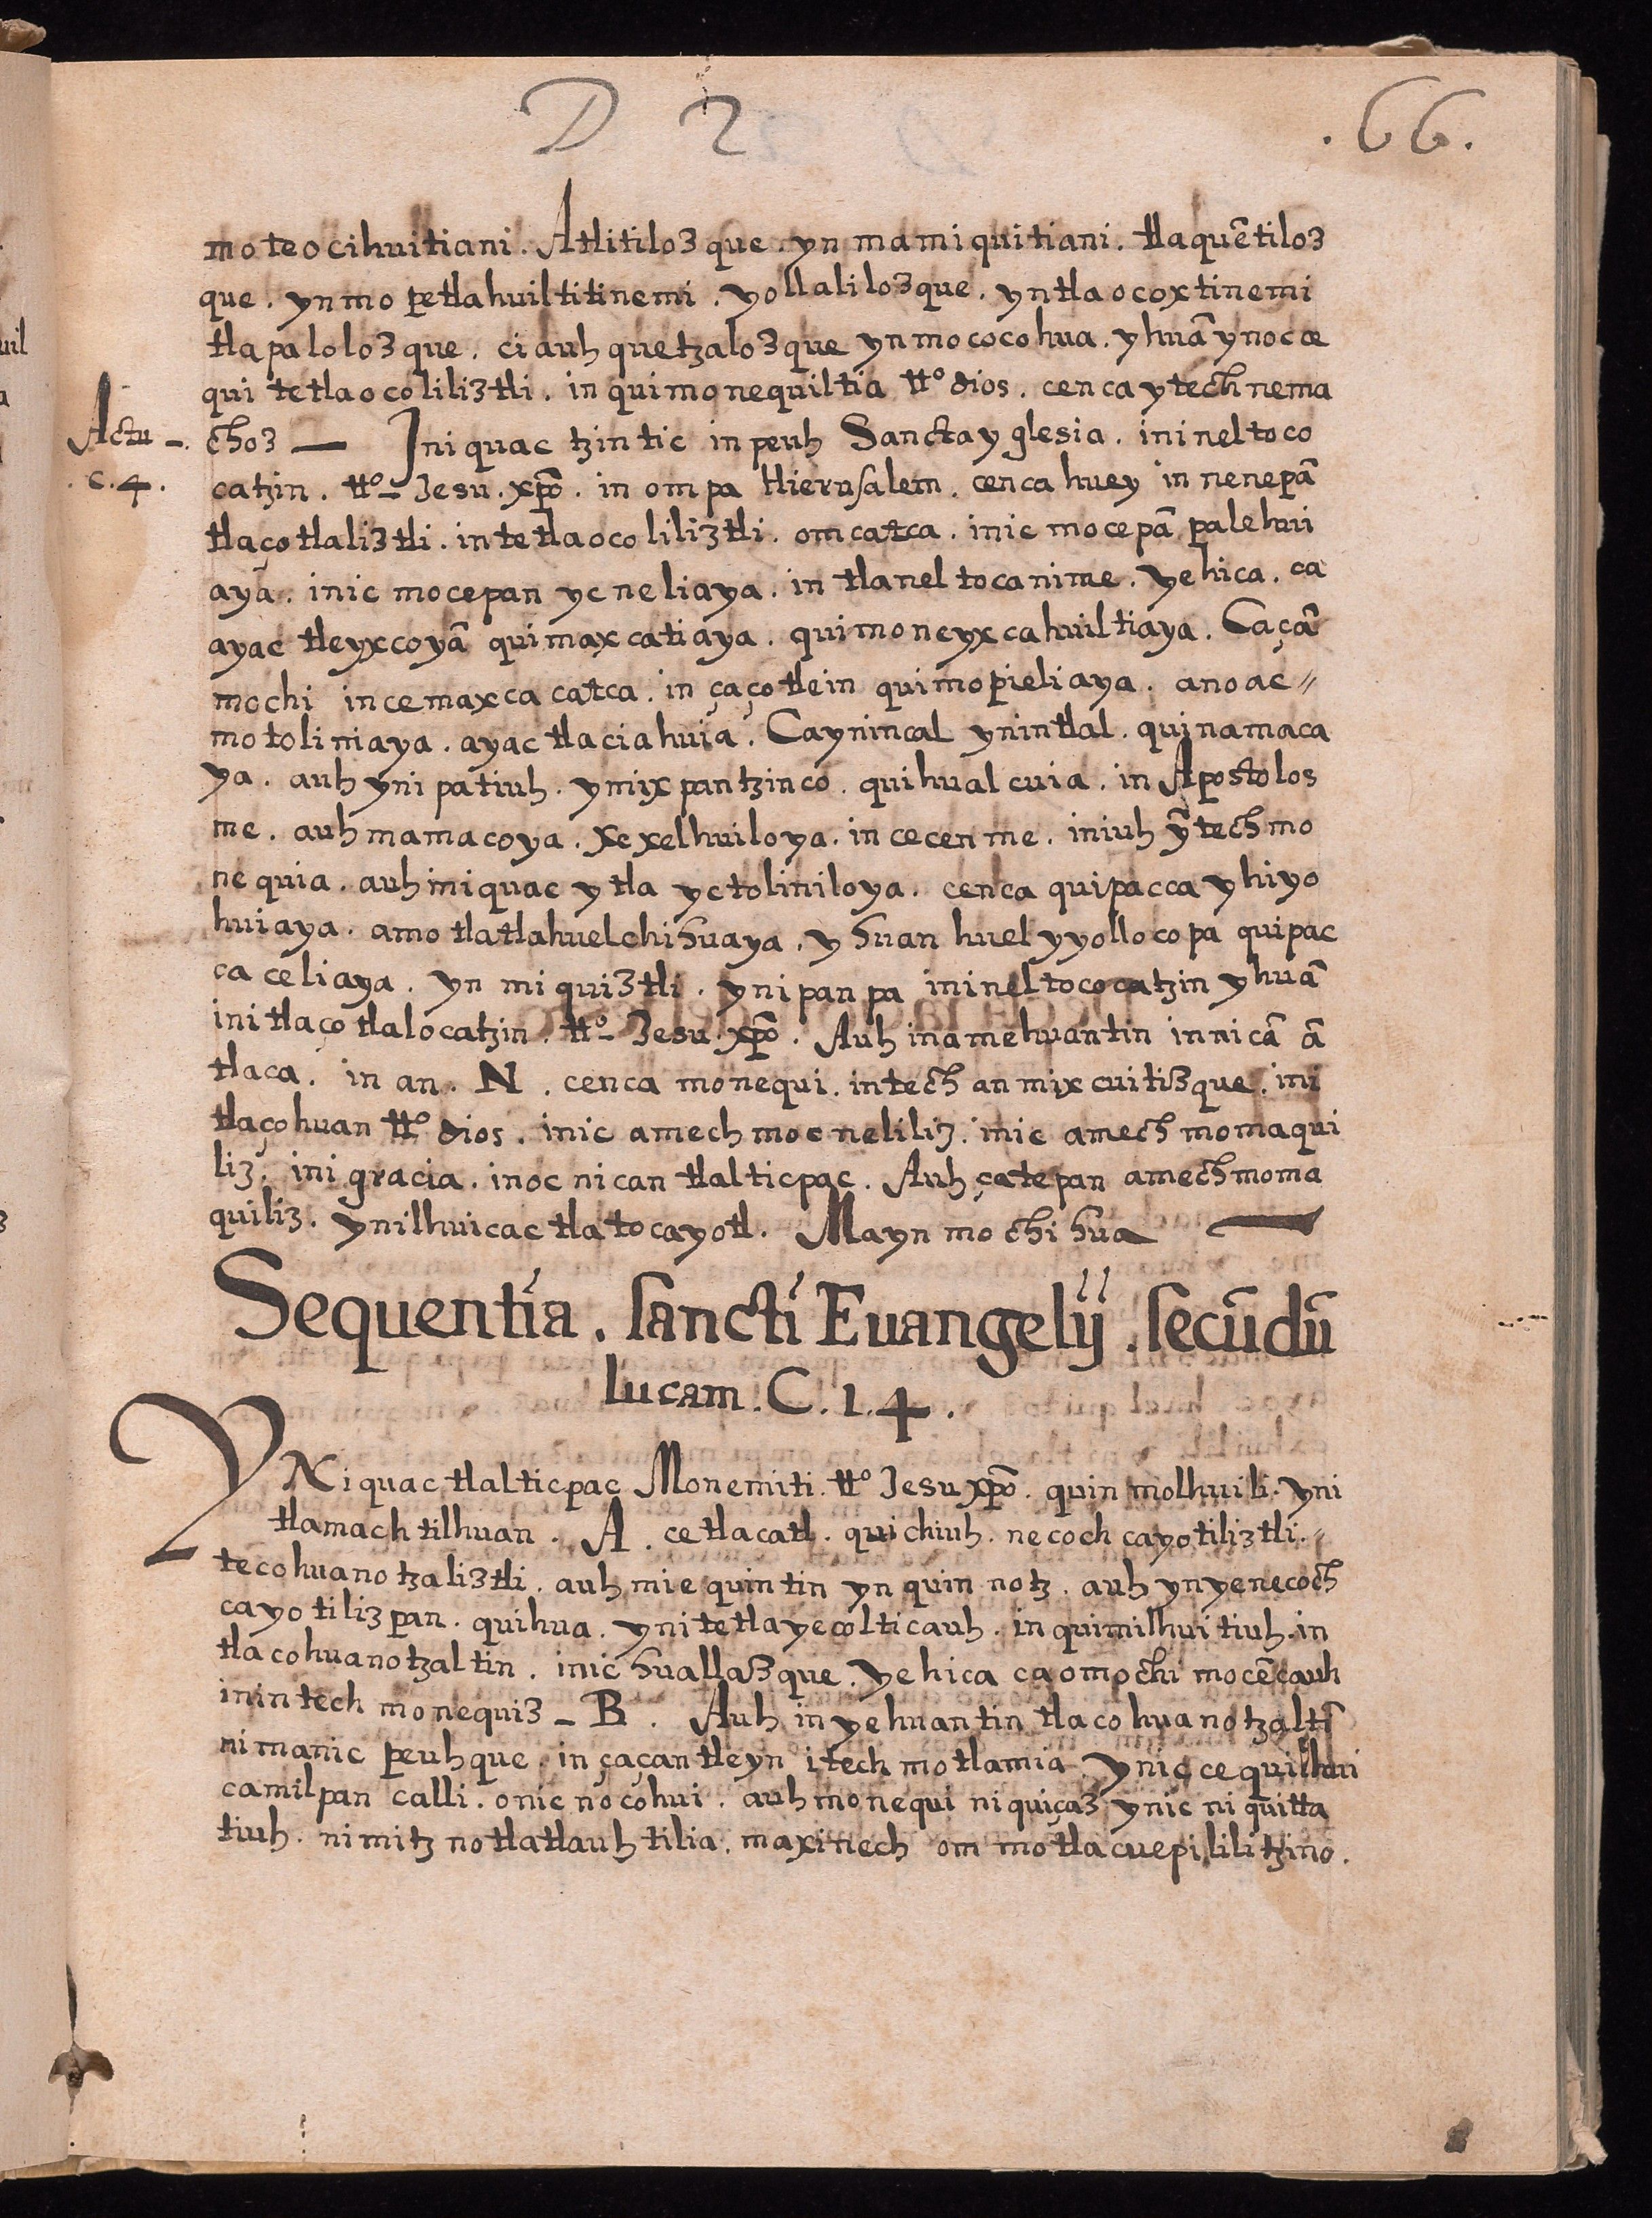 D 2 .66.
moteocihuitiani. Atlitilozque. yn mamiquitiani. tlaquẽtiloz
que. ynmo petlahuiltitinemi. yollalilozque. yntlaocoxtinemi
tlapalolozque. ciauhquetzalozque ynmococohua. yhuã ynoc ce
qui tetlaocoliliztli. in quimonequiltia tto dios. cenca ytech nema
Actu -. choz — Iniquac tzintic in peuh Sancta yglesia. inineltoco
.c.4. catzin. tto- Jesu. xpõ. in ompa Hierusalem. cenca huey in nenepã
tlaçotlaliztli. in tetlaocoliliztli. omcatca. inic mocepã palehui
aya. inic mocepan ycneliaya. in tlaneltocanime. yehica. ca
ayac tleyxcoyã quimaxcatiaya. quimoneyxcahuiltiaya. Caçã
mochi incemaxca catca. in çaçotlein quimopieliaya. anoac //
motoliniaya. ayac tlaciahuia. Caynincal ynintlal. quinamaca
ya. auh ynipatiuh. ymixpantzinco. quihualcuia. in Apostolos
me. auh mamacoya. xexelhuiloya. in cecenme. iniuh ỹtech mo
nequia. auh iniquac ytla yctoliniloya. cenca quipacca yhiyo
huiaya. amo tlatlahuelchihuaya. yhuan huel yyollocopa quipac
ca celiaya. yn miquiztli. ynipanpa inineltococatzin yhuã
initlaçotlalocatzin. tto- Jesu. xpõ. Auh inamehuantin innicã ã
tlaca. in an. N. cenca monequi. intech anmixcuitizque. ini
tlaçohuan tto dios. inic amechmocneliliz. inic amechmomaqui
liz. ini gracia. inoc nican tlalticpac. Auh çatepan amechmoma
quiliz. ynilhuicac tlatocayotl. Mayn mochihua —
Sequentia. sancti Euangelij. secũdũ
lucam. C. 14.
YNiquac tlalticpac Monemiti. tto Jesu xpõ. quin molhuili. yni
tlamachtilhuan. A. ce tlacatl. quichiuh. necochcayotiliztli. //
tecohuanotzaliztli. auh miequintin yn quin notz. auh yn ye necoch
cayotilizpan. quihua. ynitetlayecolticauh. in quimilhuitiuh. in
tlacohuanotzaltin. inic huallazque. yehica ca omochi mocẽcauh
inintech monequiz - B. Auh in yehuantin tlacohuanotzaltĩ
nimanic peuhque. in çaçan tleyn itech motlamia. ynic ce quilhui
camilpan calli. onicnocohui. auh monequi niquiçaz ynic niquitta
tiuh. nimitz notlatlauhtilia. maxinech om motlacuepililitzino.